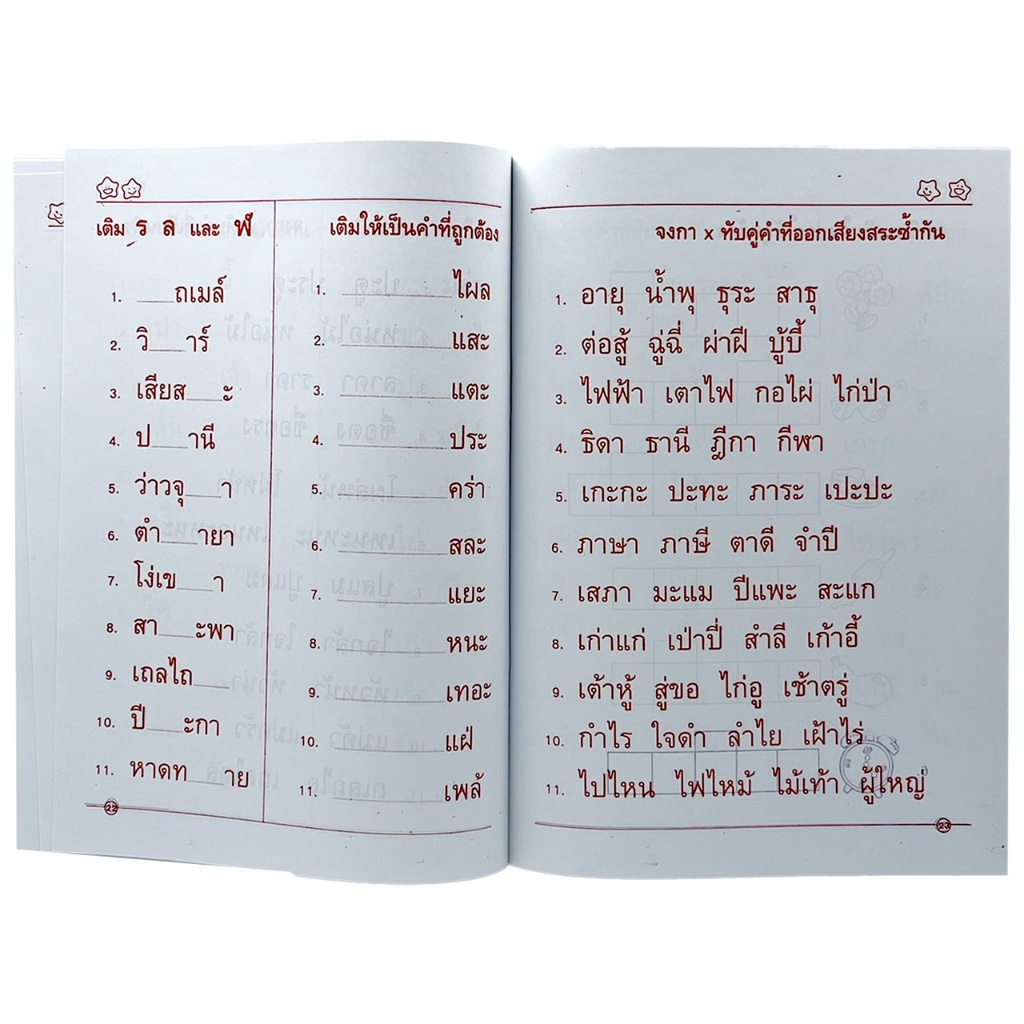 เติม ร ล และ ฬ
1. ____ถเมล์
2. วิ____าร์
3. เสียส____ะ
4. ป____านี
5. ว่าวจุ____า
6. ตำ____ายา
7. โง่เข____า
8. สา____ะพา
9. เถลไถ____
10. ปี____ะกา
11. หาดท____าย
22
เติมให้เป็นคำที่ถูกต้อง
1. ____________ไผล
2. ____________แสะ
3. ____________แตะ
4. ____________ประ
5. ____________คร่า
6. ____________สละ
7. ____________แยะ
8. ____________หนะ
9. ____________เทอะ
10. ____________แฝ่
11. ____________เพล้
จงกา x ทับคู่คำที่ออกเสียงสระซ้ำกัน
1. อายุ น้ำพุ ธุระ สาธุ
2. ต่อสู้ ฉู่ฉี่ ผ่าฝี บู้บี้
3. ไฟฟ้า เตาไฟ กอไผ่ ไก่ป่า
4. ธิดา ธานี ฎีกา กีฬา
5. เกะกะ ปะทะ ภาระ เปะปะ
6. ภาษา ภาษี ตาดี จำปี
7. เสภา มะแม ปีแพะ สะแก
8. เก่าแก่ เป่าปี่ สำลี เก้าอี้
9. เต้าหู้ สู่ขอ ไก่อู เช้าตรู่
10. กำไร ใจดำ ลำไย เฝ้าไร่
11. ไปไหน ไฟไหม้ ไม้เท้า ผู้ใหญ่
23